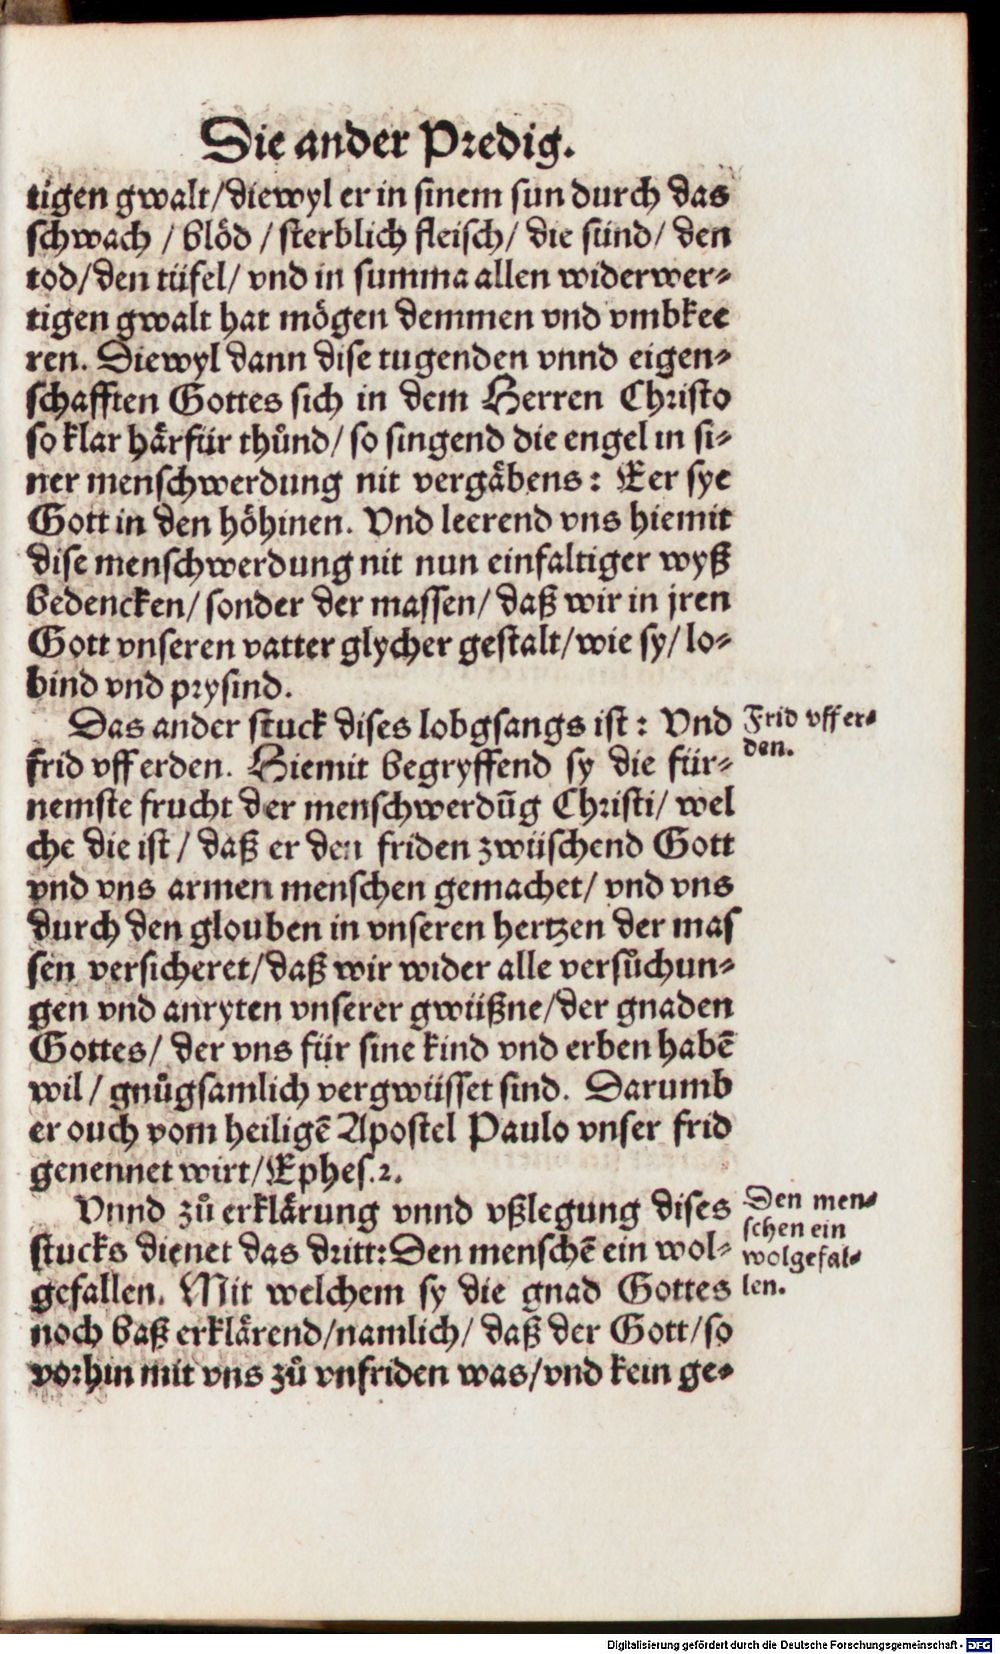 Die ander Predig.
tigen gwalt/diewyl er in sinem sun durch das
schwach / blöd / sterblich fleisch/ die sünd/ den
tod/den tüfel/ vnd in summa allen widerwer-
tigen gwalt hat mögen demmen vnd vmbkee
ren. Diewyl dann dise tugenden vnnd eigen-
schafften Gottes sich in dem Herren Christo
so klar härfür thůnd/ so singend die engel in si-
ner menschwerdung nit vergäbens: Eer sye
Gott in den höhinen. Vnd leerend vns hiemit
dise menschwerdung nit nun einfaltiger wyß
bedencken/ sonder der massen/ daß wir in jren
Gott vnseren vatter glycher gestalt/wie sy/ lo-
bind vnd prysind.
Das ander stuck dises lobgsangs ist: Vnd
frid vff erden. Hiemit begryffend sy die für-
nemste frucht der menschwerdūg Christi/ wel
che die ist / daß er den friden zwüschend Gott
vnd vns armen menschen gemachet/ vnd vns
durch den glouben in vnseren hertzen der mas
sen versicheret/daß wir wider alle versůchun-
gen vnd anryten vnserer gwüßne/der gnaden
Gottes/ der vns für sine kind vnd erben habē
wil / gnůgsamlich vergwüsset sind. Darumb
er ouch vom heiligē Apostel Paulo vnser frid
genennet wirt/Ephes.2.
Vnnd zů erklärung vnnd vßlegung dises
stucks dienet das dritt: Den menschē ein wol-
gefallen. Mit welchem sy die gnad Gottes
noch baß erklärend/namlich/ daß der Gott/so
vorhin mit vns zů vnfriden was/vnd kein ge-
Frid vff er-
den.
Den men-
schen ein
wolgefal-
len.
Digitalisierung gefördert durch die Deutsche Forschungsgemeinschaft - DFG